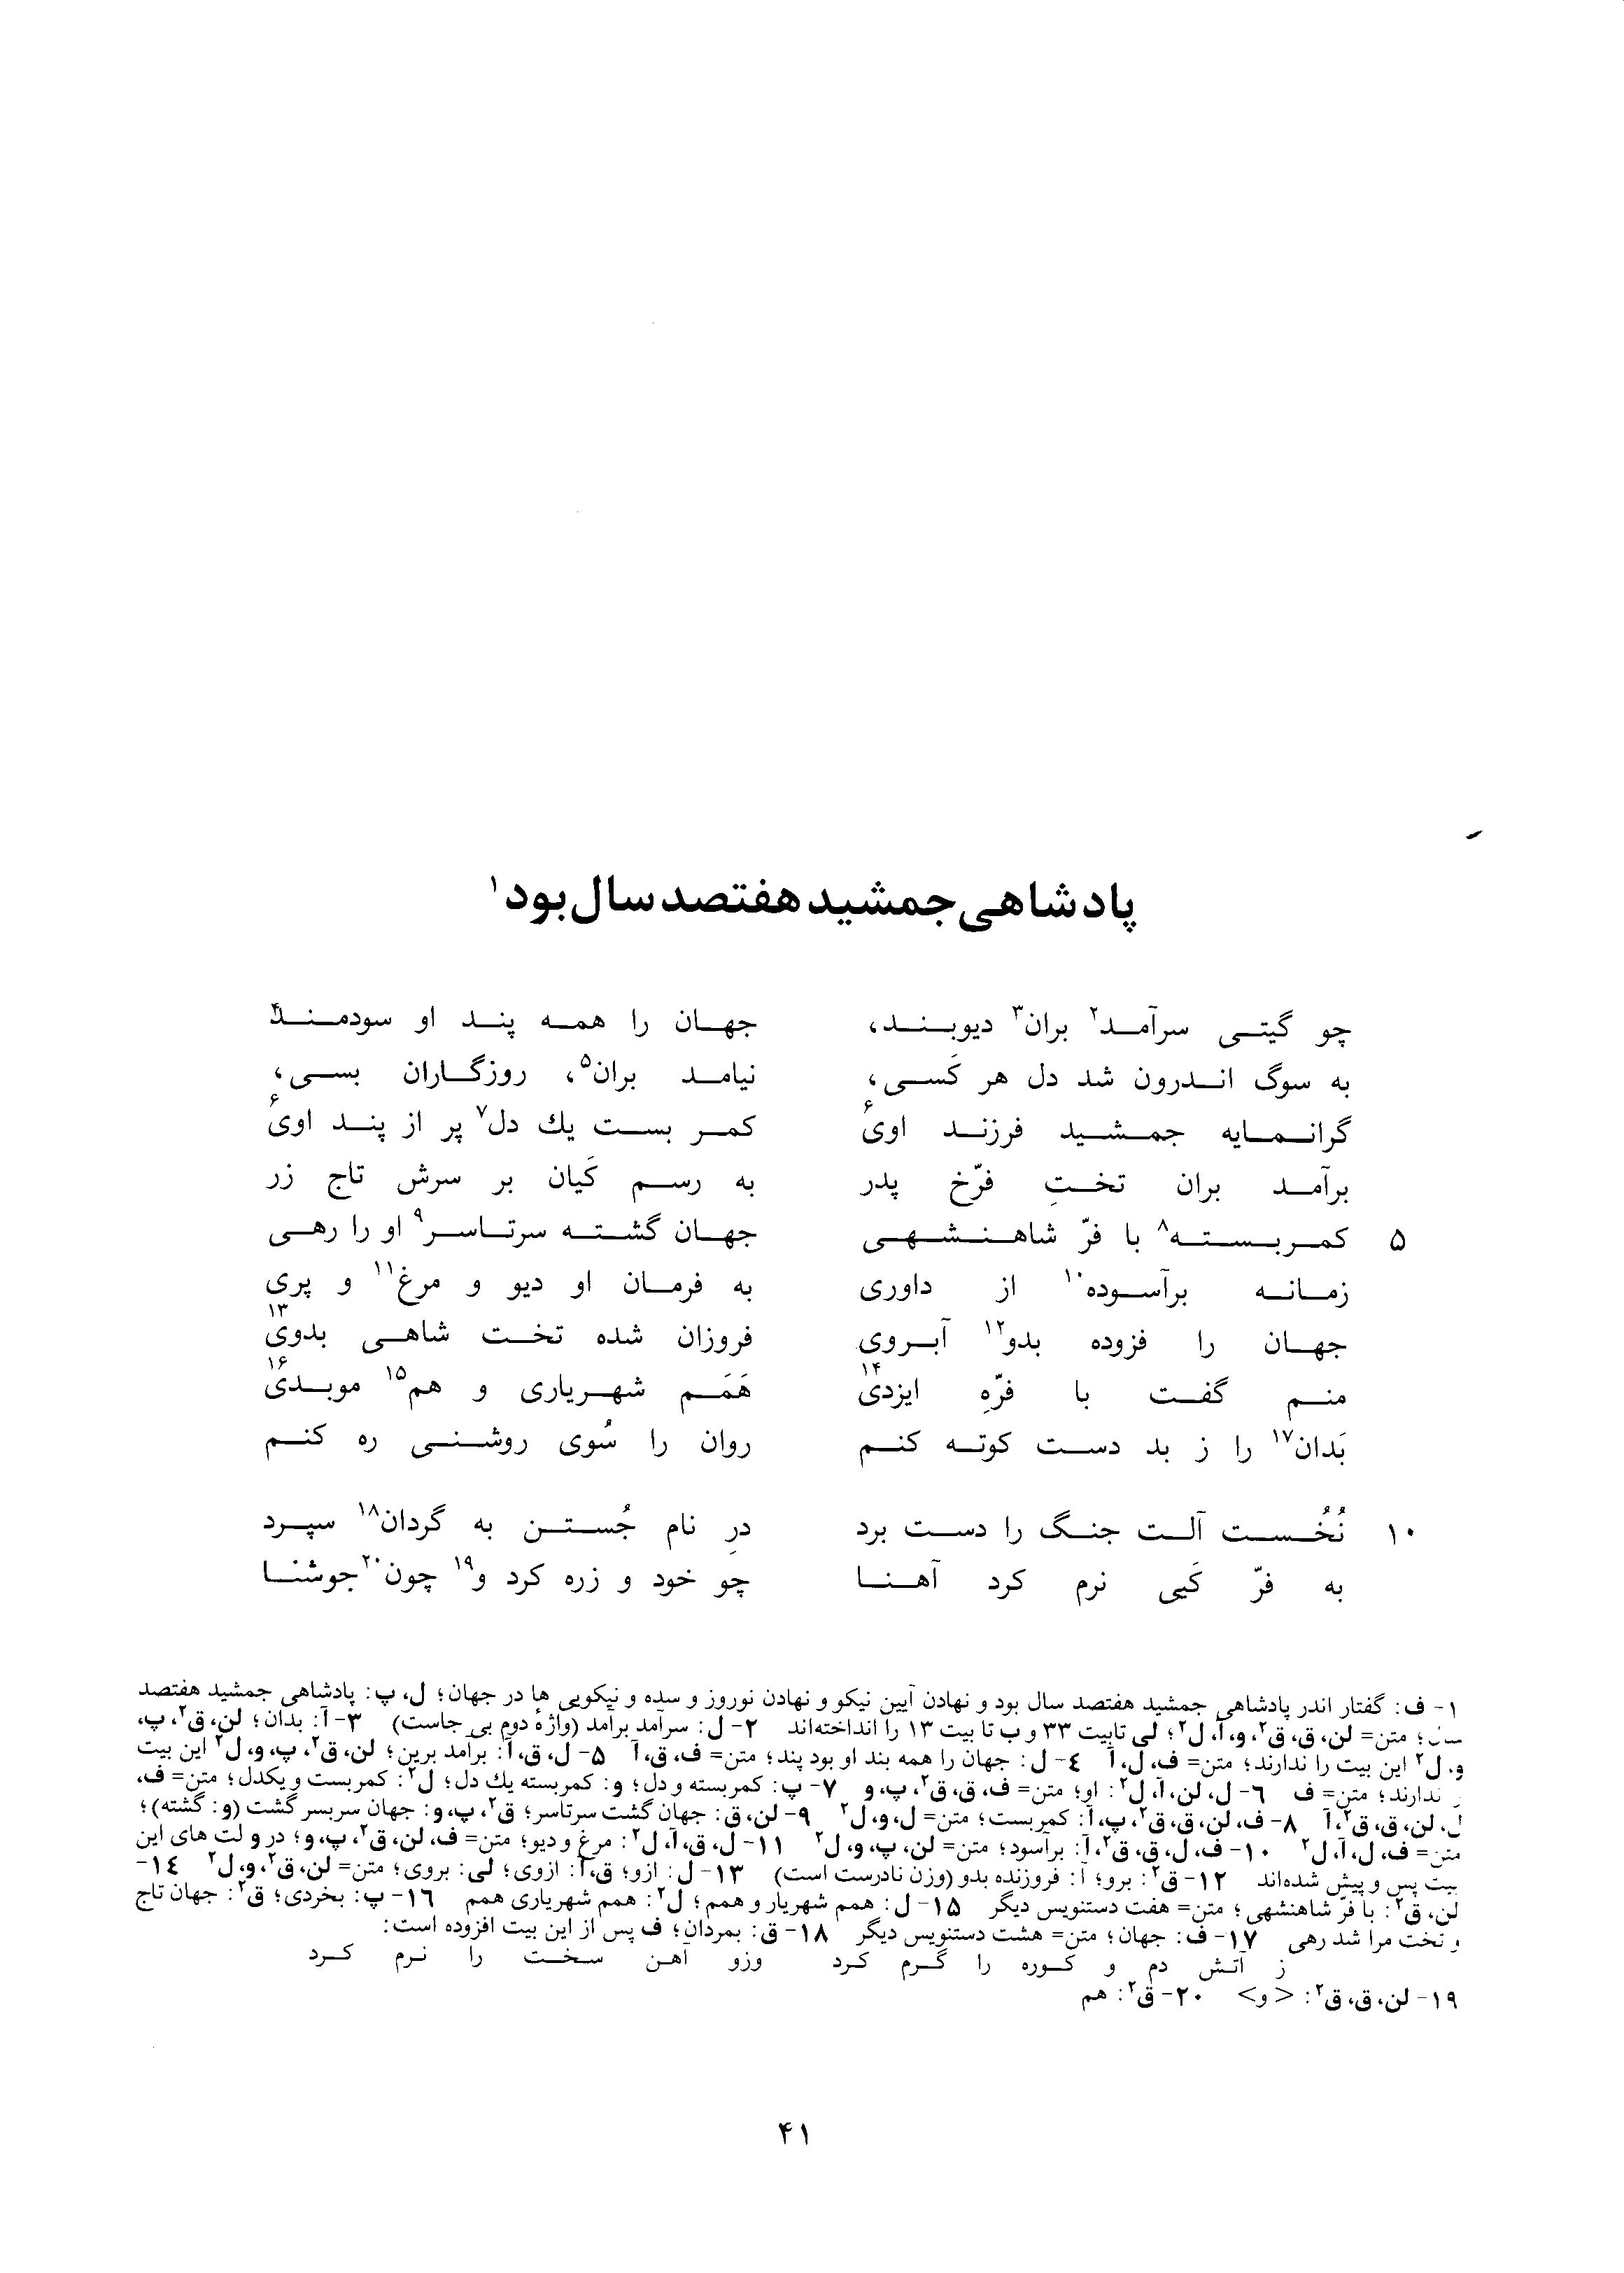 پادشاهی جمشید هفتصد سال بود۱
چو گیتی سرآمد۲ بران۳ دیوبند، جهان را همه پند او سودمند۴
به سوگ اندرون شد دل هر کَسی، نیامد بران۵، روزگاران بسی،
گرانمایه جمشید فرزند اوی۶ کمر بست یك دل۷ پر از پند اوی۶
برآمد بران تختِ فرّخ پدر به رسم کَیان بر سرش تاج زر
۵ کمربسته۸ با فرّ شاهنشهی جهان گشته سرتاسر۹ او را رهی
زمانه برآسوده۱۰ از داوری به فرمان او دیو و مرغ۱۱ و پری
جهان را فزوده بدو۱۲ آبروی فروزان شده تخت شاهی بدوی۱۳
منم گفت با فرّهِ ایزدی۱۴ هَمَم شهریاری و هم۱۵ موبدی۱۶
بَدان۱۷ را ز بد دست کوته کنم روان را سُوی روشنی ره کنم
۱۰ نُخُست آلت جنگ را دست برد درِ نام جُستن به گردان۱۸ سپرد
به فرّ کَیی نرم کرد آهنا چو خود و زره کرد و۱۹ چون۲۰ جوشنا
۱- ف: گفتار اندر پادشاهی جمشید هفتصد سال بود و نهادن آیین نیکو و نهادن نوروز و سده و نیکویی ها در جهان؛ ل، پ: پادشاهی جمشید هفتصد
سال؛ متن= لن، ق، ق۲، و، آ، ل۲؛ لی تابیت ۳۳ و ب تا بیت ۱۳ را انداخته‌اند ۲- ل: سرآمد برآمد (واژهٔ دوم بی جاست) ۳- آ: بدان؛ لن، ق۲، پ،
و، ل۲ این بیت را ندارند؛ متن= ف، ل، آ ٤- ل: جهان را همه بند او بود پند؛ متن= ف، ق، آ ۵- ل، ق، آ: برآمد برین؛ لن، ق۲، پ، و، ل۲ این بیت
ر ندارند؛ متن= ف ٦- ل، لن، آ، ل۲: او؛ متن= ف، ق، ق۲، پ، و ۷- پ: کمربسته و دل؛ و: کمربسته یك دل؛ ل۲: کمربست و یکدل؛ متن= ف،
ل، لن، ق، ق۲، آ ۸- ف، لن، ق، ق۲، پ، آ: کمربست؛ متن= ل، و، ل۲ ۹- لن، ق: جهان گشت سرتاسر؛ ق۲، پ، و: جهان سربسر گشت (و: گشته)؛
متن= ف، ل، آ، ل۲ ۱۰- ف، ل، ق، ق۲، آ: برآسود؛ متن= لن، پ، و، ل۲ ۱۱- ل، ق، آ، ل۲: مرغ و دیو؛ متن= ف، لن، ق۲، پ، و؛ در و لت های این
بیت پس و پیش شده‌اند ۱۲- ق۲: برو؛ آ: فروزنده بدو (وزن نادرست است) ۱۳- ل: ازو؛ ق، آ: ازوی؛ لی: بروی؛ متن= لن، ق۲، و، ل۲ ۱٤-
لن، ق۲: با فرّ شاهنشهی؛ متن= هفت دستنویس دیگر ۱۵- ل: همم شهریار و همم؛ ل۲: همم شهریاری همم ۱٦- پ: بخردی؛ ق۲: جهان تاج
و تخت مرا شد رهی ۱۷- ف: جهان؛ متن= هشت دستنویس دیگر ۱۸- ق: بمردان؛ ف پس از این بیت افزوده است:
ز آتش دم و کوره را گرم کرد وزو آهن سخت را نرم کرد
۱۹- لن، ق، ق۲: <و> ۲۰- ق۲: هم
۴۱